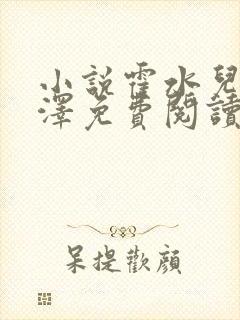 小说霍水兒
澤免費閱讀
呆提歡顏